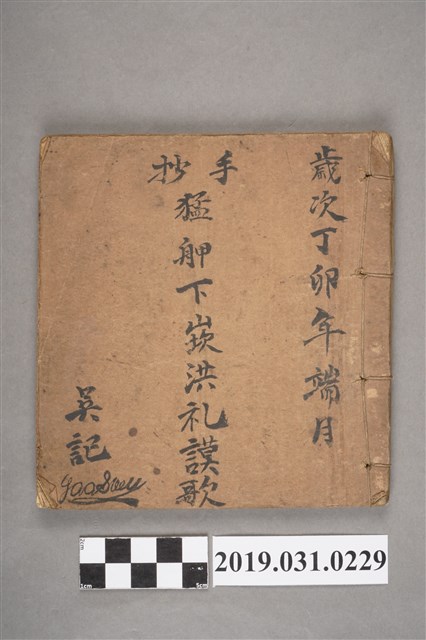 歲次丁卯年端月
手抄
猛舺下崁洪礼謨歌
吳記
2cm
1cm
5cm
2019.031.0229